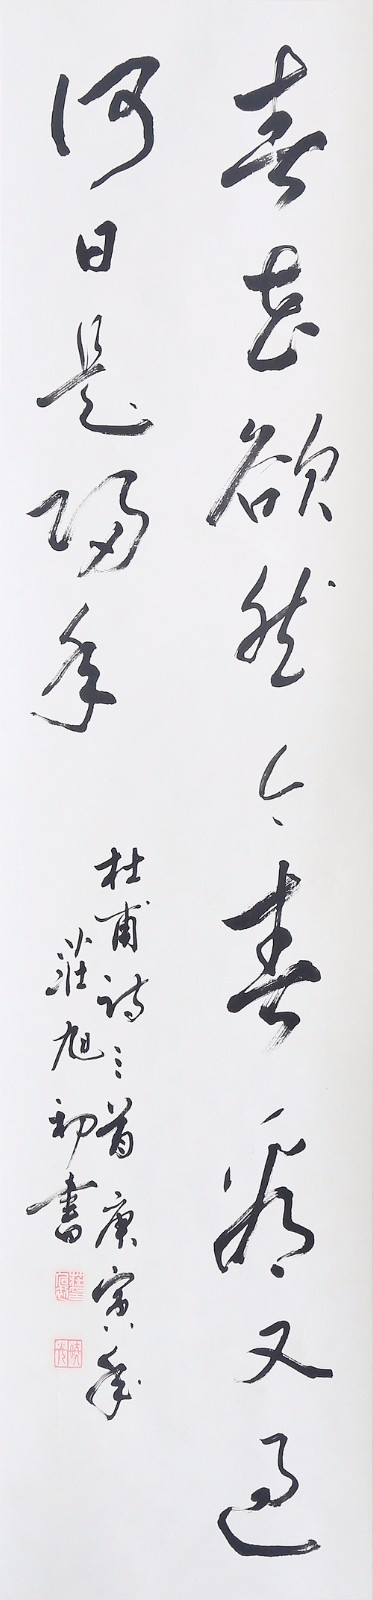 青花欲然今春看又過
何日是歸年
杜甫詩三首庚寅年
莊旭初書